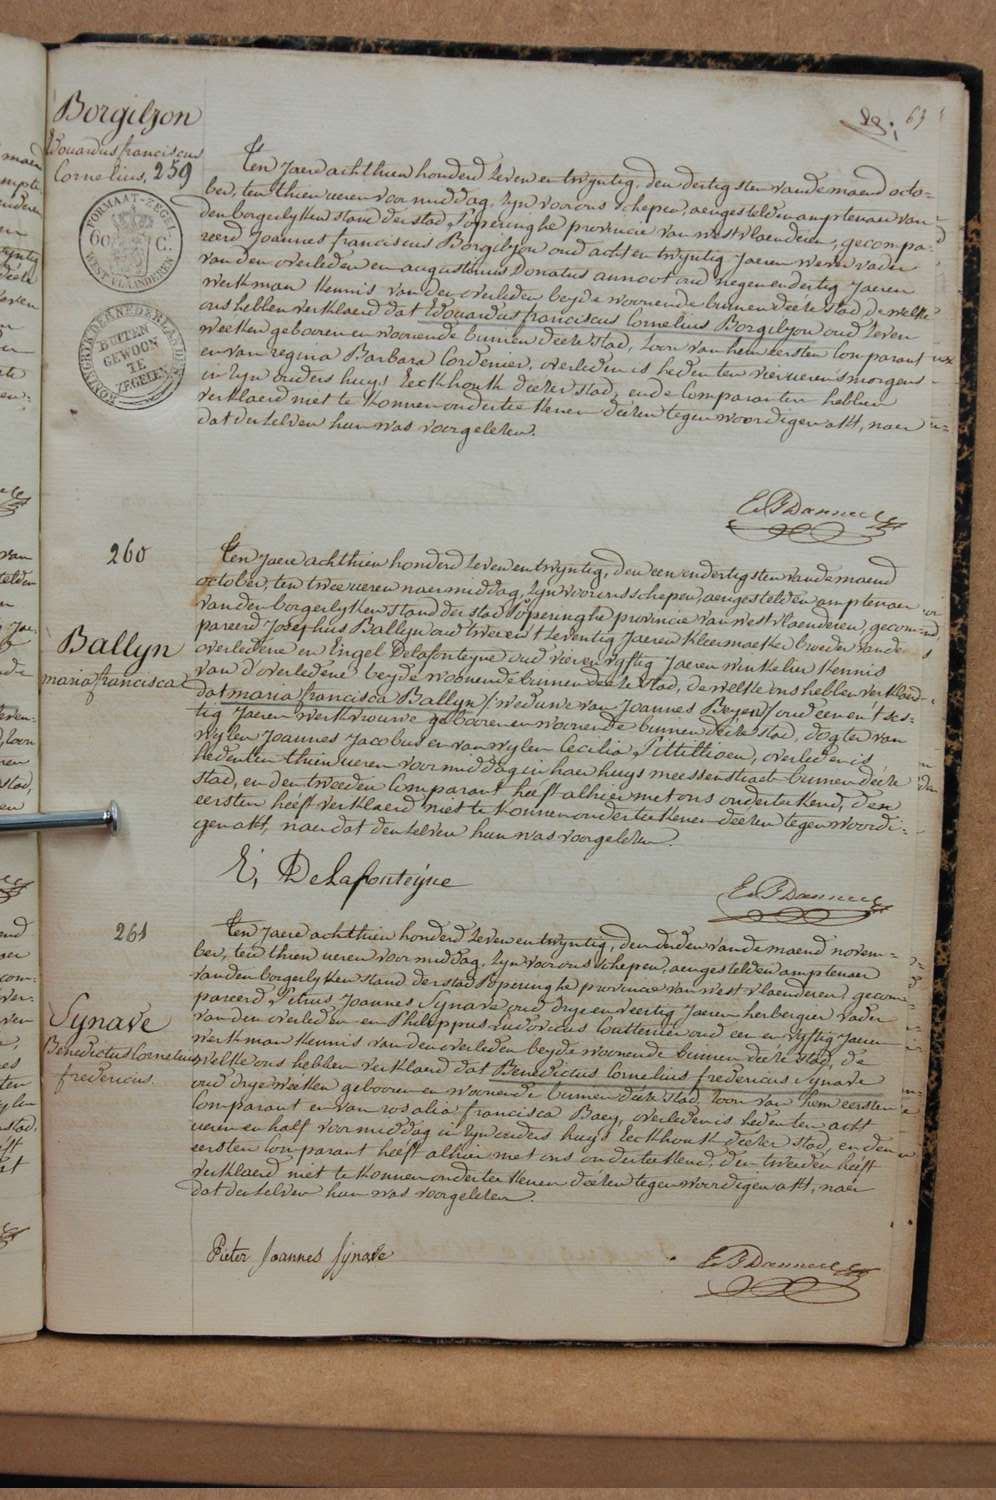 69
Borgilyon
Edouardus franciscus
Cornelius, 259
FORMAAT-ZEGEL
60 C:
WEST VLAANDEREN
KONINGRYK DER NEDERLANDEN
BUITEN
GEWOON
TE
ZEGELEN
Ten Jaere achthien honderd zeven en twyntig, den dertigsten van de maend octo-
ber, ten thien ueren voormiddag, zyn voor ons schepen, aengestelden amptenaer van
den borgerlyken stand der stad Poperinghe provincie van westvlaenderen, gecompa-
reerd Joannes franciscus Borgilyon oud acht en twyntig Jaeren wever vader
van den overleden en augustinus Donatus annoot oud negen en dertig Jaeren
werkman kennis van den overleden beyde woonende binnen deeze stad, de welke
ons hebben verklaerd dat Edouardus franciscus Cornelius Borgilyon oud zeven
weeken gebooren en woonende binnen deeze stad, zoon van hem eersten Comparant
en van regina Barbara Cordenier, overleden is heden ten vier ueren smorgens
in zyn ouders huys Eeckhoutk deezer stad, ende Comparanten hebben
verklaerd niet te konnen onderteekenen deezen tegenwoordigen akt, naer
dat dezelven hun was voorgelezen.
260
Ballyn
maria francisca
Ten Jaere achthien honderd zeven en twyntig, den een en dertigsten van de maend
october, ten twee ueren naermiddag, zyn voor ons schepen, aengestelden amptenaer
van den borgerlyken stand der stad Poperinghe provincie van westvlaenderen, gecom-
pareerd Josephus Ballyn oud twee en t'zeventig Jaeren kleermaeker broeder van de
overledene en Engel Delafonteyne oud vier en vyftig Jaeren winkelier kennis
van d'overledene beyde woonende binnen deeze stad, de welke ons hebben verklaerd
dat maria francisca Ballyn (weduwe van Joannes Beyen) oud een en t'ses-
tig Jaeren werkvrouwe gebooren en woonende binnen deeze stad, dogter van
wylen Joannes Jacobus en van wylen Cecilia Pittillioen, overleden is
heden ten thien ueren voormiddag in haer huys meessenstraete binnen deeze
stad, en den tweeden Comparant heeft alhier met ons onderteekend, den
eersten heeft verklaerd niet te konnen onderteekenen deezen tegenwoordi-
gen akt, naer dat den zelven hun was voorgelezen.
E, Delafonteyne
261
Synave
Benedictus Cornelius
fredericus
Ten Jaere achthien honderd zeven en twyntig, den derden van de maend novem-
ber, ten thien ueren voormiddag, zyn voor ons schepen, aengestelden amptenaer
van den borgerlyken stand der stad Poperinghe provincie van westvlaenderen, gecom-
pareerd Pitrus Joannes Synave oud drye en veertig Jaeren herbergier vader
van den overleden en Philippus Ludovicus Couttenier oud een en vyftig Jaeren
werkman kennis van den overleden beyde woonende binnen deeze stad, de
welke ons hebben verklaerd dat Benedictus Cornelius fredericus Synave
oud drye weeken gebooren en woonende binnen deeze stad, zoon van hem eersten
Comparant en van rosalia francisca Baey, overleden is heden ten acht
ueren en half voormiddag in zyn ouders huys Eeckhoutk deezer stad, en den
eersten Comparant heeft alhier met ons onderteekend, den tweeden heeft
verklaerd niet te konnen onderteekenen deezen tegenwoordigen akt, naer
dat dezelven hun was voorgelezen.
Pieter Joannes Synave